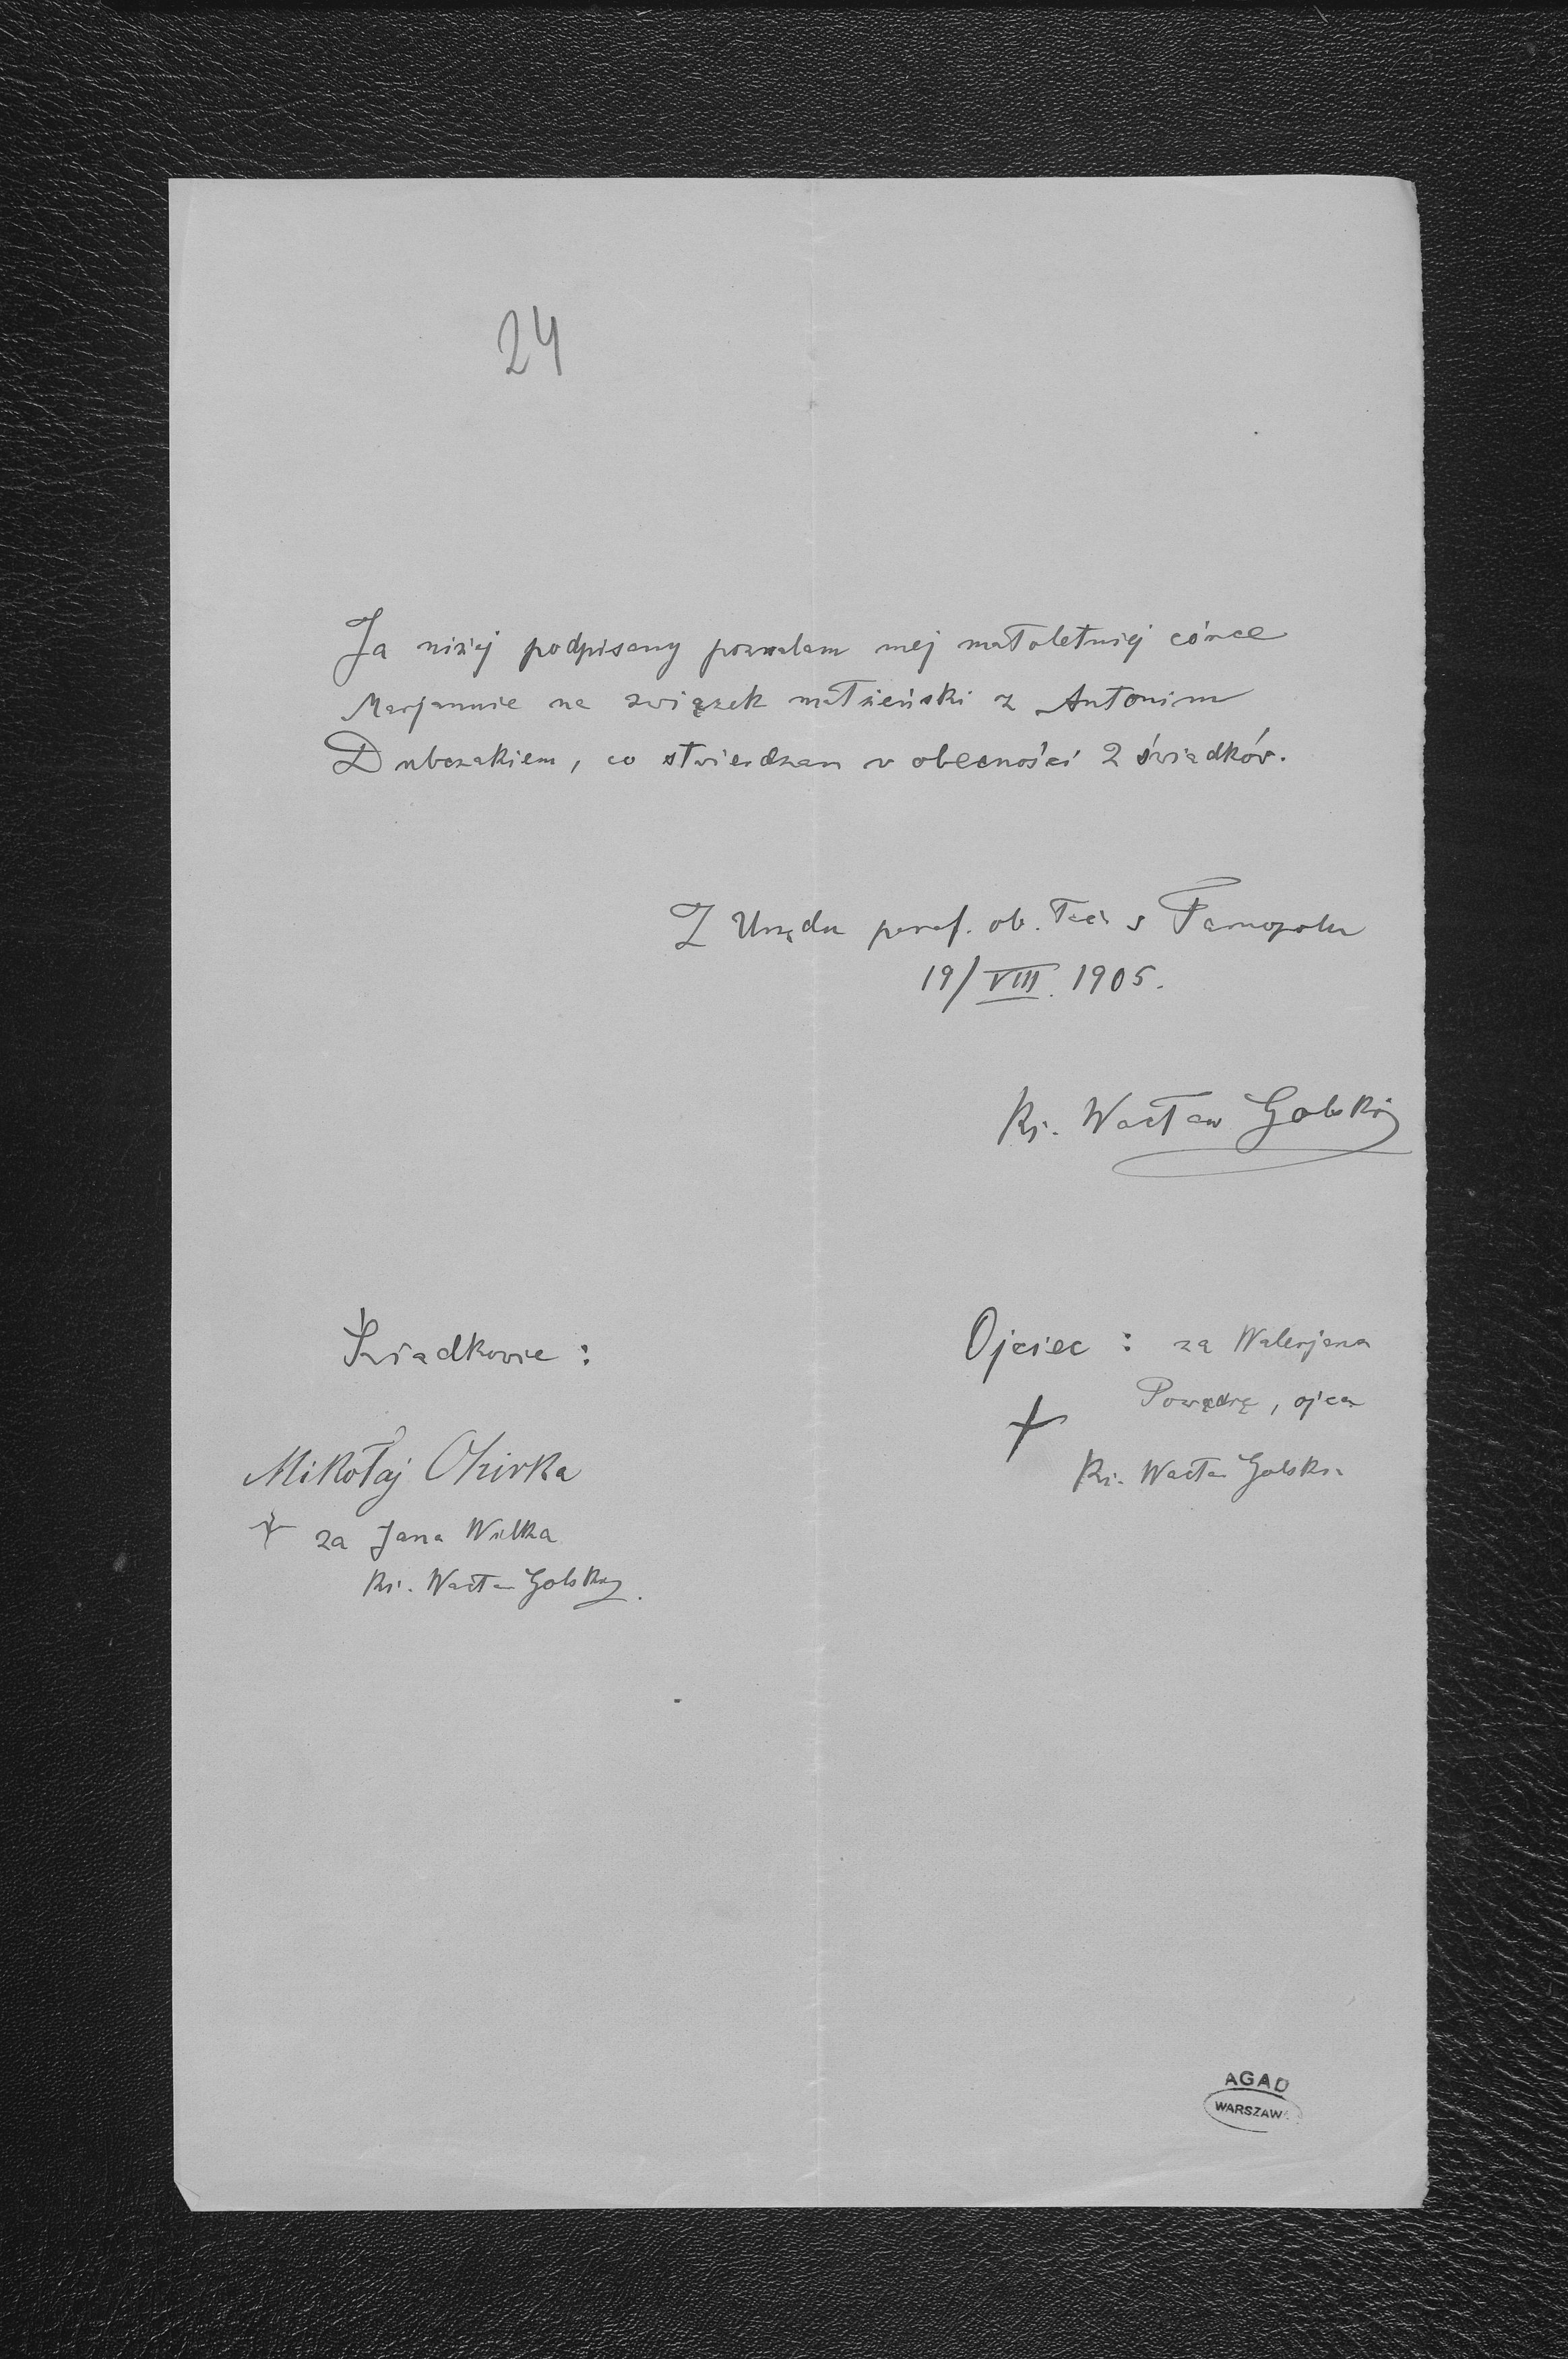 24
Ja niżej podpisany pozwalam mej małoletniej córce
Marjannie na związek małżeński z Antonim
Dubczakiem, co stwierdzam w obecności 2 świadków.
Z Urzędu paraf. ob. łać. w Tarnopolu
19/VIII. 1905.
Ks. Wacław Golski
Świadkowie :
Ojciec : za Walerjana
Powędrę, ojca
+
Ks. Wacław Golski
Mikołaj
+ za Jana Wilka
Ks. Wacław Golski.
AGAD
WARSZAWA